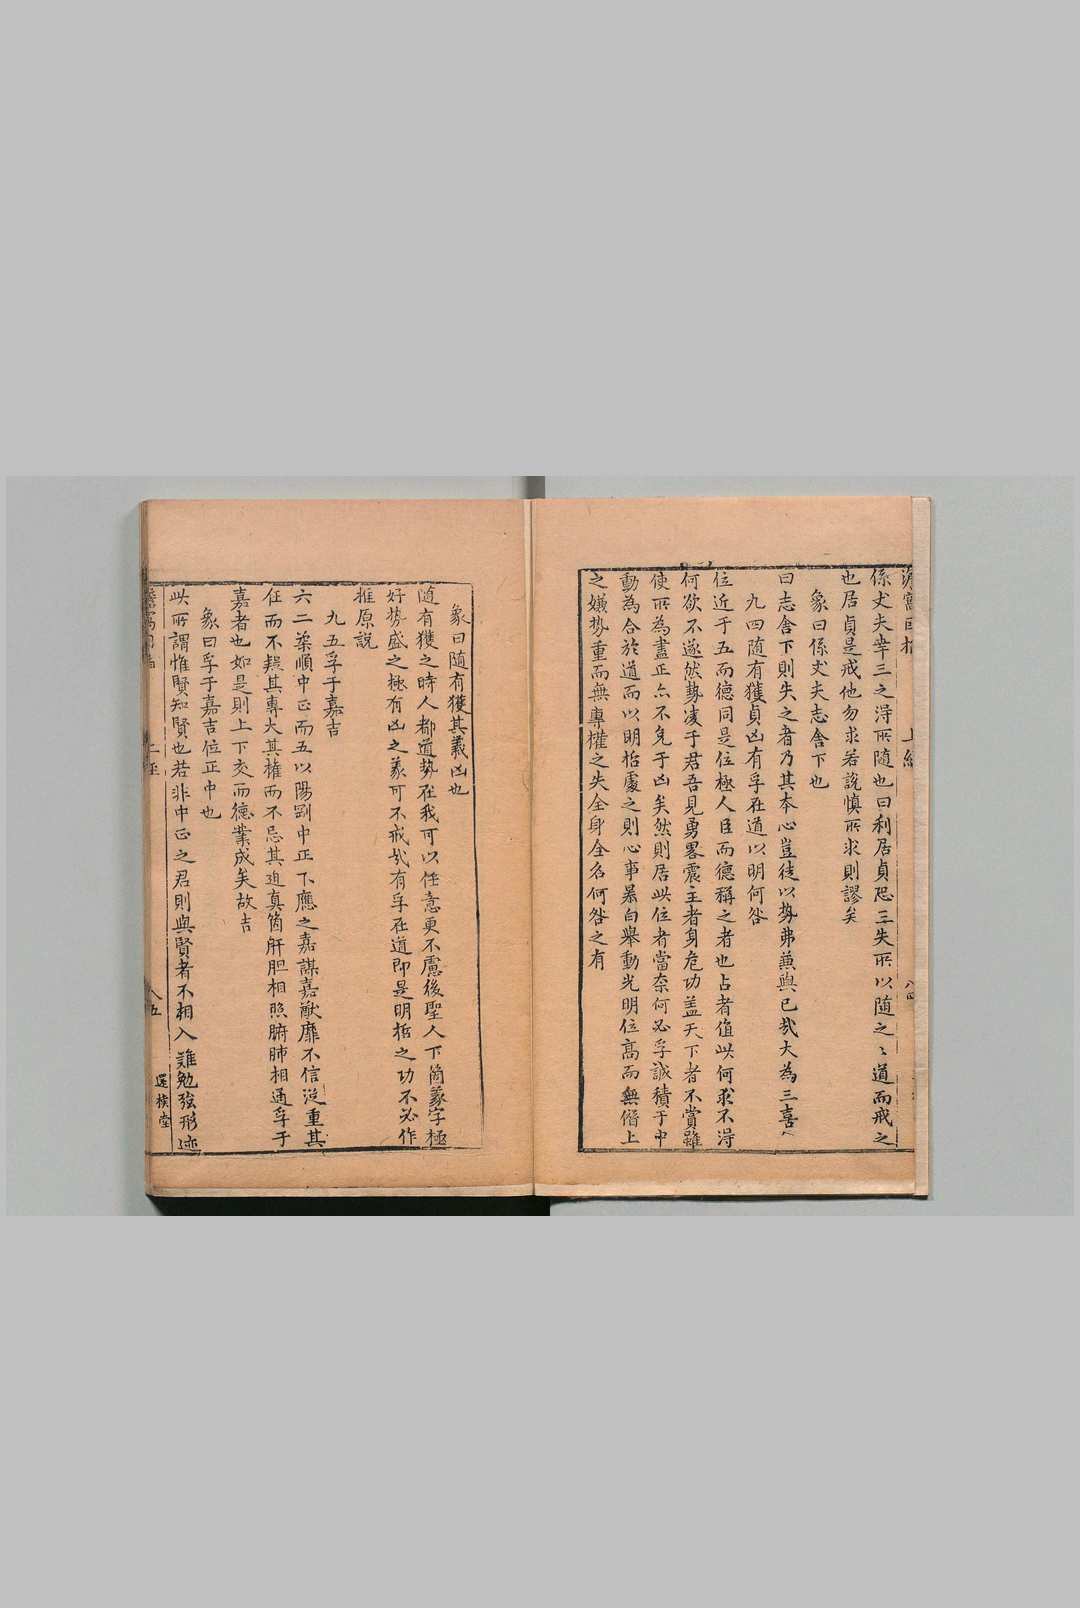 係丈夫幸三之淂所隨也曰利居貞恐三失所以隨之〻道而戒之
也居貞是戒他勿求若說慎所求則謬矣
象曰係丈夫志舍下也
曰志舍下則失之者乃其本心豈徒以势弗兼與已㦲大為三喜
九四随有獲貞凶有孚在道以明何咎
位近于五而德同是位極人臣而德稱之者也占者值此何求不淂
何欲不遂然勢凌于君吾見勇畧震主者身危功盖天下者不賞雖
使所為盡正亦不免于凶矣然則居此位者當奈何必孚誠積于中
動為合於道而以明哲處之則心事暴白舉動光明位高而無僭上
之嫌势重而無專權之失全身全名何咎之有
象曰隨有獲其義凶也
隨有獲之時人都道勢在我可以任意更不慮後聖人下箇象字極
好势盛之極有凶之象可不戒㦲有孚在道即是明哲之功不必作
推原說
九五孚于嘉吉
六二柒順中正而五以陽剛中正下應之嘉謀嘉猷靡不信從重其
任而不疑其專大其權而不忌其迫真箇肝胆相照腑肺相通孚于
嘉者也如是則上下交而德業成矣故吉
象曰孚于嘉吉位正中也
此所謂惟賢知賢也若非中正之君則與賢者不相入雖勉强形迹
八五
還樸堂